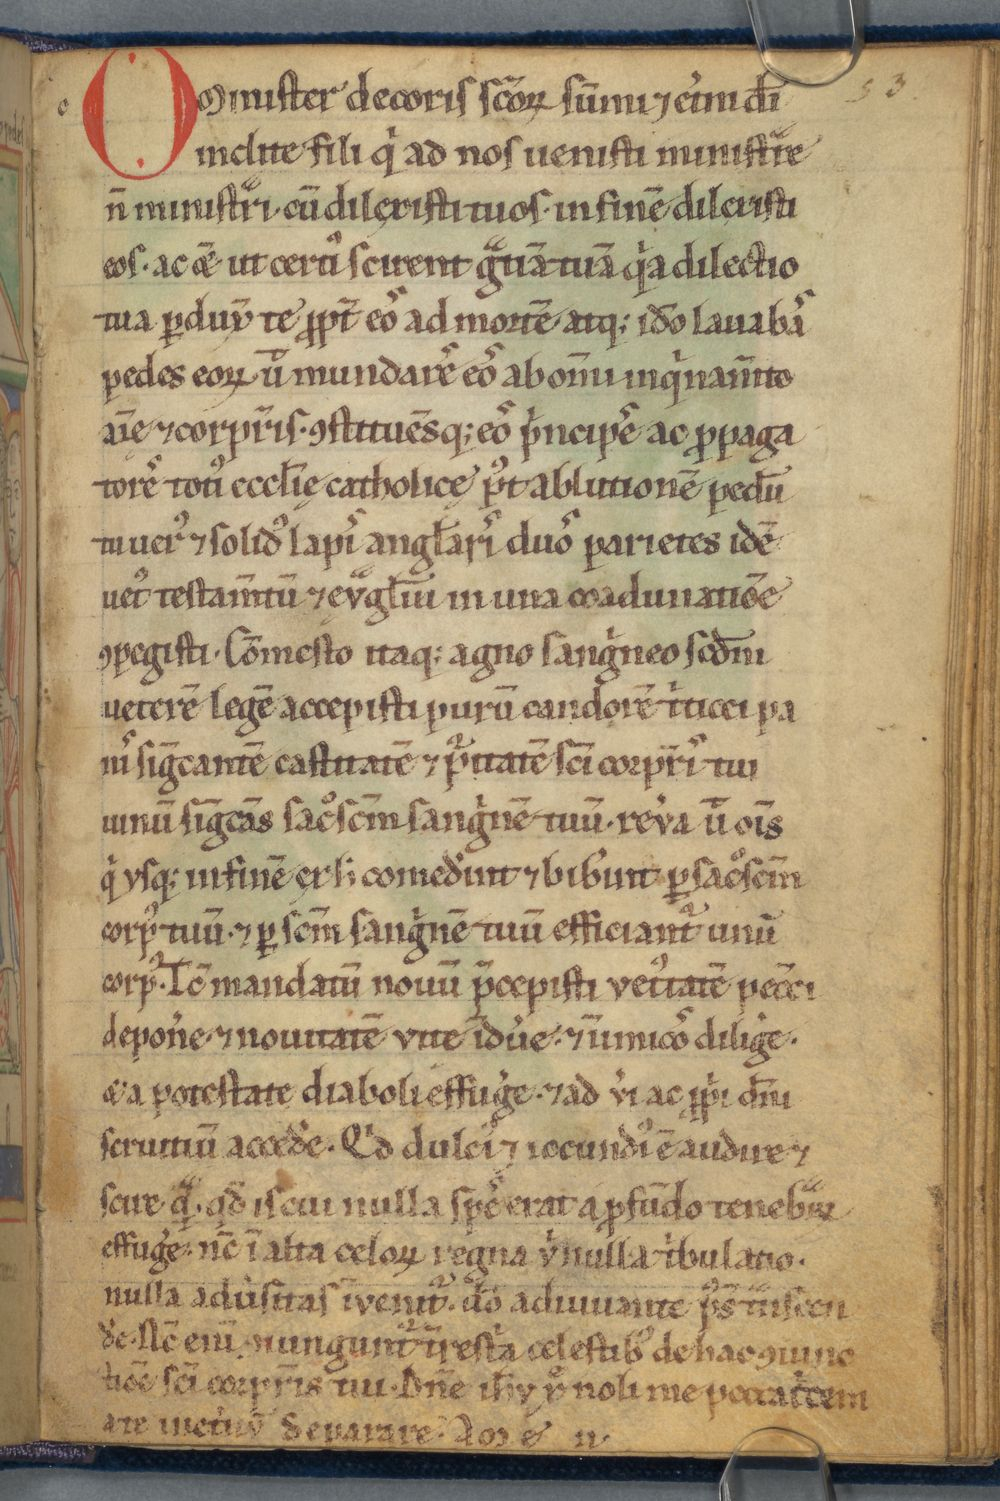 53
O minister decoris sc̄oꝝ sūmi ⁊ et̾ni dī
inclite fili q̇ ad nos uenisti ministrͣre
n̄ ministrͣri. cū dilexisti tuos. in finē dilexisti
eos. ac ϗ̄ ut cert᷒ scirent gͣtiā tuā q̇a dilectio
tua ꝑdux̄ te ꝓpt̄ eoˢ ad mortē atq; idō lauabͣˢ
pedes eoꝝ ū mundareˢ eoˢ ab om̄i inq̇nam̄to
aīe ⁊ corꝑis. ꝯstituēsq; eoˢ pͥncipeˢ ac ꝓpaga
toreˢ toti᷒ eccl̄ie catholice p᷒t ablutionē pedū
tu uer᷒ ⁊ solid᷒ lapiˢ angl̄ariˢ duoˢ parietes idē
uet᷒ testam̄tū ⁊ euͣgl̄iū in una coadunatiōe
ꝯpegisti. Cōmesto itaq; agno sang̾neo scdm̄
ueterē legē accepisti purū candorē tͥticei pa
niˢ sig̅cantē castitatē ⁊ pͥuitatē sc̄i corꝑiˢ tui
uinū sig̅cās sac᷒sc̄m sang̾nē tuū. reu̾a ū oīs
q̇ usq; in finē sc̄lͥ comed̾int ⁊ bib̾int ꝑ sac᷒sc̄m
corp᷒ tuū. ⁊ ꝑ sc̄m sang̾nē tuū efficiant᷑ unū
corp᷒. Tc̄ mandatū nouū p̄cepisti uet᷒tatē pecc̄i
depon̾e. ⁊ nouitatē uite īdu̾e. ⁊ īimicoˢ dilig̾e.
ϗ a potestate diaboli effug̾e. ⁊ ad ui̾ ac ꝓpͥi dn̄i
seruitiū acced̾e. Qͥd dulci᷒ ⁊ iocundi᷒ ē audire ⁊
scire qͣ̄. qd̄ is cui nulla speˢ erat a ꝓfūdo tenebͣꝝ
effug̾e. nc̄ ī alta celoꝝ regna uͥ nulla tͥbulatio.
nulla adu̾sitas īuenit᷑. dō adiuuante pˢ tͣnscen
d̾e. Nc̄ eni ꝯiungunt᷑ t̾restͥa celestib᷒ de hac ꝯiunc
tiōe sc̄i corꝑis tui. Dn̄e ih̄u xͦ noli me peccatͦrem
a te inctū separare. Amen